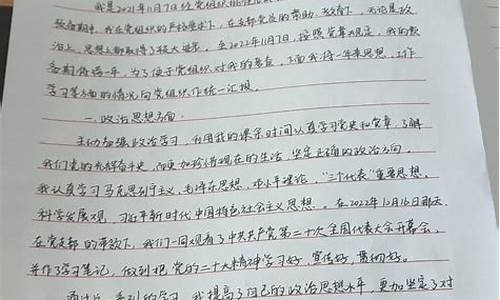 我是2021年11月7日经党组织批准
预备期中,我在党组织的严格要求下,在支部党员的帮助、教育下,无论是政
治上、思想上都取得了较大进步。至2022年11月7日,按照党章规定,我的预
备期将满一年。为了便于党组织对我的考查,下面我将一年来思想、工作
学习等方面的情况向党组织作统一汇报。
一、政治思想方面.
主动加强政治学习,利用我的课余时间认真学习党史和党章,了解
我们党的光辉奋斗史,从而更加珍惜现在的生活,坚定正确的政治方向。
我认真学习马克思列宁主义,毛泽东思想,邓小平理论,“三个代表”重要思想,
科学发展观,习近平新时代中国特色社会主义思想。在2022年10月16日那天,
在党支部的带领下,我们一同观看了中共共产党第二十次全国代表大会开幕会,
并作了学习笔记,做到把党的二十大精神学习好,宣传好,贯彻好。
通过这一系列的学习,我提高了自己的政治思想水平,更加坚定了对